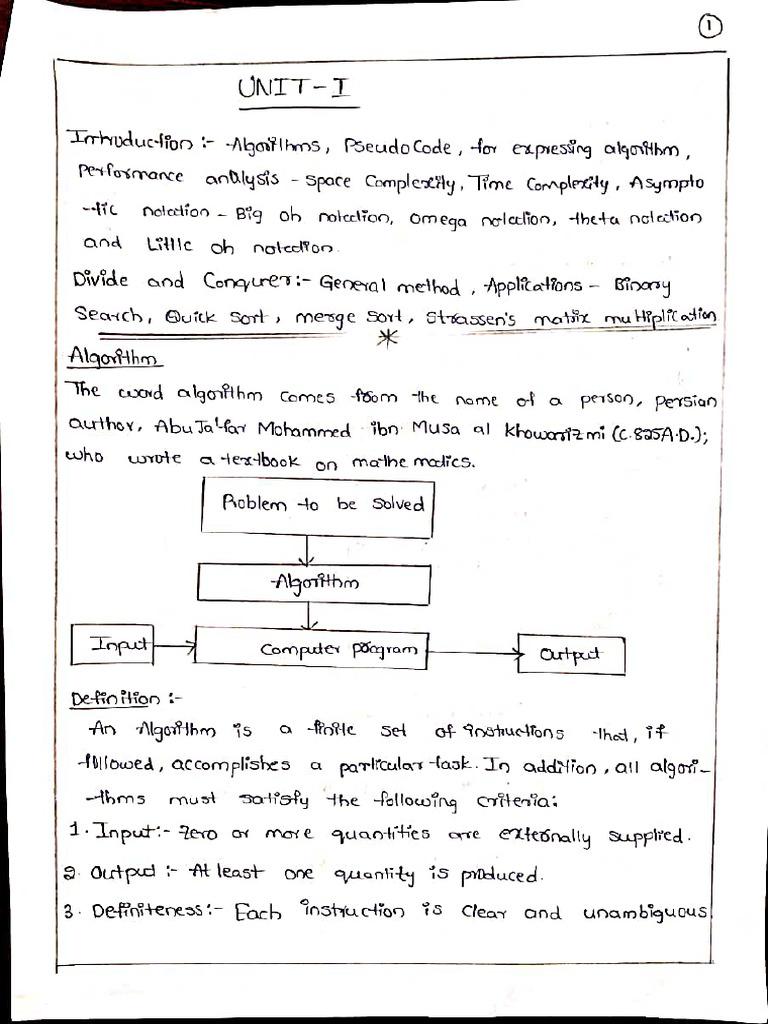 1
UNIT-I
Introduction :- Algorithms, PseudoCode, for expressing algorithm,
Performance analysis - Space Complexity, Time Complexity, Asympto
-tic notation - Big oh notation, omega notation, theta notation
and Little oh notation.
Divide and Conqurer:- General method, Applications - Binary
Search, Quick sort, merge sort, Strassen's matrix multiplication
Algorithm
The word algorithm comes from the name of a person, persian
author, Abu Ja'far Mohammed ibn Musa al khowarizmi (C.825A.D.);
who wrote a textbook on mathematics.
Problem to be solved
Algorithm
Input
Computer program
Output
Definition :-
An Algorithm is a finite set of instructions that, if
followed, accomplishes a particular task. In addition, all algori-
-thms must satisfy the following criteria:
1. Input:- Zero or more quantities are externally supplied.
2. Output :- At least one quantity is produced.
3. Definiteness:- Each instruction is clear and unambiguous